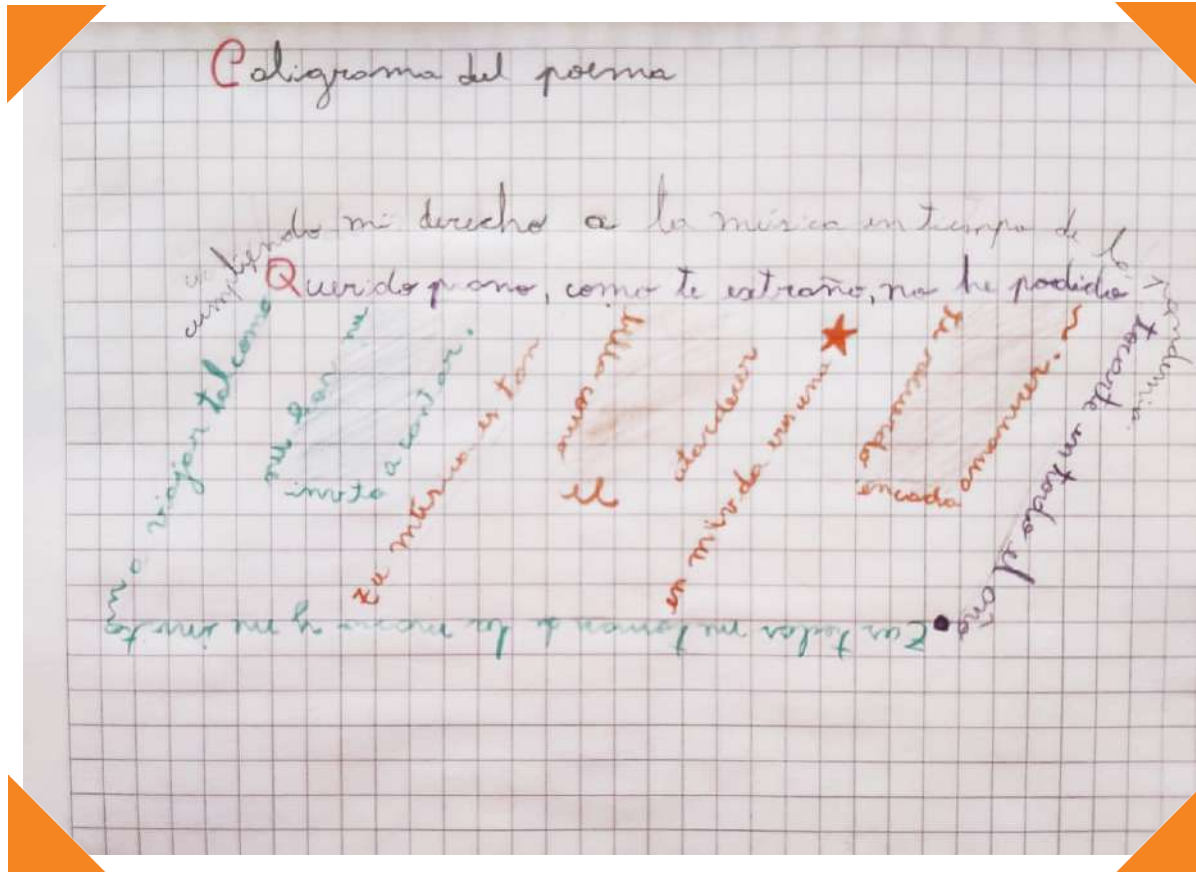 Caligrama del poema
cumpliendo mi derecho a la música en tiempo de la pandemia.
Querido piano, como te extraño, no he podido
tocarte en todo el año
Tus teclas me toman de la mano y me invitan
a viajar tal como
invito
a cantar.
tu música es tan
como
el
atardecer
en mi vida eres una
te
encada
amanecer.